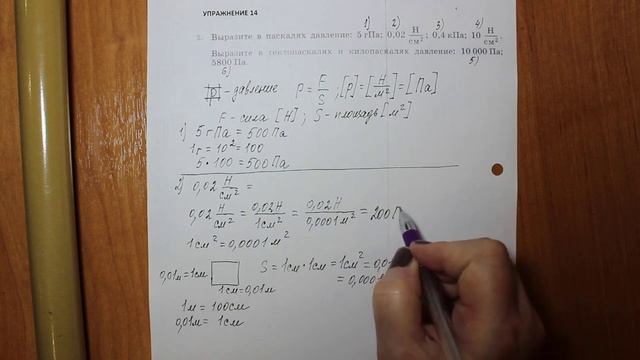 УПРАЖНЕНИЕ 14
1) 2) 3) 4)
2. Выразите в паскалях давление: 5 гПа; 0,02 Н/см²; 0,4 кПа; 10 Н/см².
Выразите в гектопаскалях и килопаскалях давление: 10 000 Па;
5800 Па. 5)
6)
p - давление P = F/S ; [p] = [Н/м²] = [Па]
F - сила [Н] ; S - площадь [м²]
1) 5 гПа = 500 Па
1г = 10² = 100
5 · 100 = 500 Па
2) 0,02 Н/см² =
0,02 Н/см² = 0,02Н/1см² = 0,02Н/0,0001м² = 200 П
1см² = 0,0001 м²
0,01м = 1см S = 1см · 1см = 1см² = 0,0
1см = 0,01м = 0,000
1м = 100см
0,01м = 1см